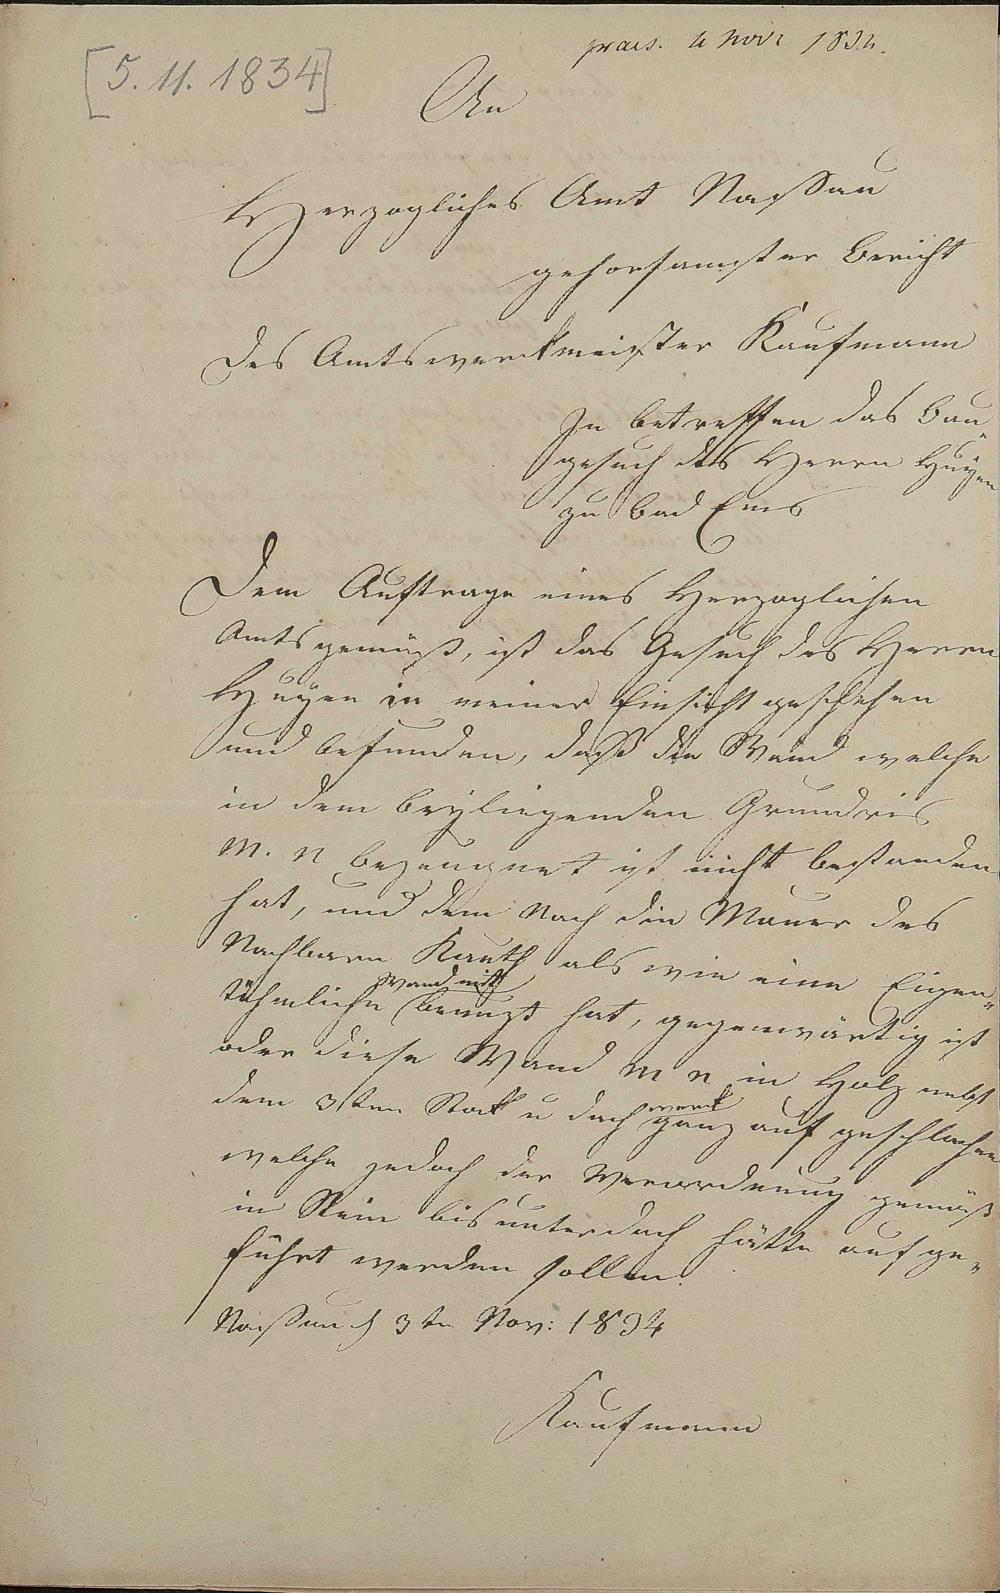 praes. 4 Novr 1834.
[5.11.1834]
An
Herzogliches Amt Nassau
gehorsamster Bericht
des Amtswerckmeister Kaufmann
In betreffen das Bau„
gesuch des Herrn Huyen
zu Bad Ems
Dem Auftrage eines Herzoglichen
Amts gemäß, ist das Gesuch des Herrn
Huyen in meiner Einsicht geschehen
und befunden, daß die Wand welche
in dem beyliegenden Grundris
m. n bezeugnet ist nicht bestanden
hat, und dem Nach die Mauer des
Nachbarn Kauth als wie eine Eigen„
Wand mit
tühmliche benuzt hat, gegenwärtig ist
oder diese Wand m n in Holz nebst
werk
dem 3ten Stok u dach ganz auf geschlachen
welche jedoch der Verordnung gemäß
in Stein bis unterdach hätte aufge„
führt werden sollen.
Nassau d 3te Nov: 1834
Kaufmann